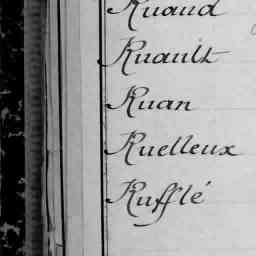 Ruaud
Ruault
Ruan
Ruelleux
Rufflé